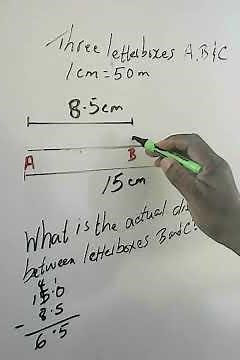 Three letterboxes A, B & C
1cm = 50m
8.5cm
A B
15cm
What is the actual
between letterboxes B and C?
4 1
15.0
- 8.5
6.5